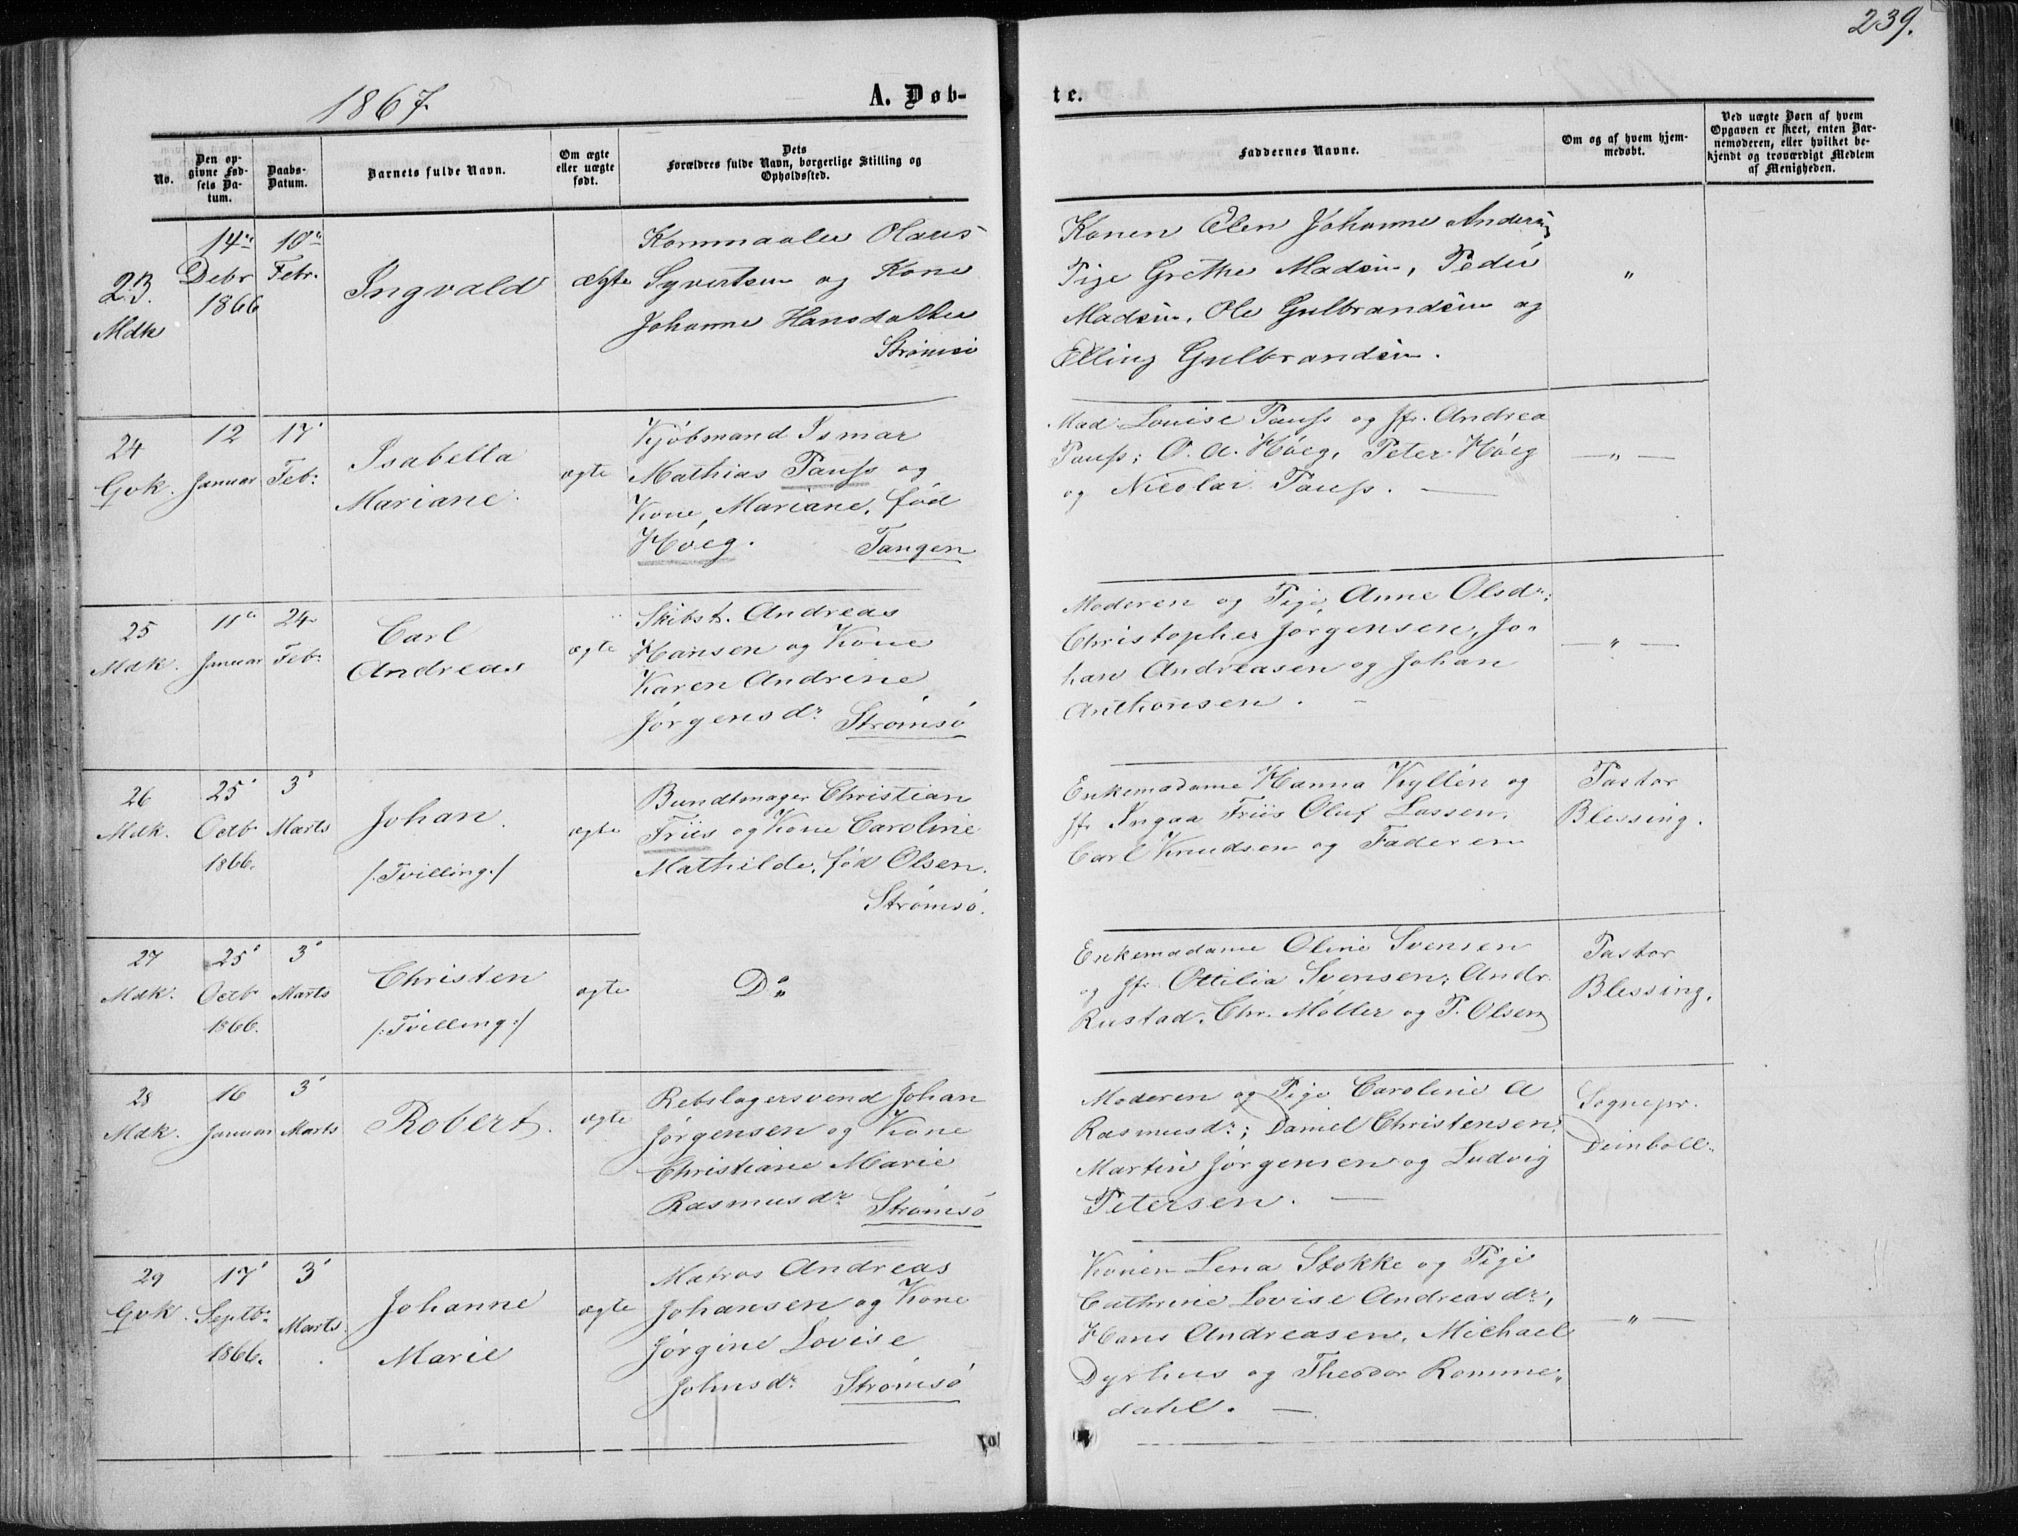 239.
1867.
A. Døb-
te.
No.
Den op-
givne Fød-
sels Da-
tum.
Daabs-
Datum.
Barnets fulde Navn.
Om ægte
eller uægte
født.
Dets
Forældres fulde Navn, borgerlige Stilling og
Opholdssted.
Faddernes Navne.
Om og af hvem hjem-
medøbt.
Ved uægte Børn af hvem
Opgaven er skeet, enten Bar-
nemoderen, eller hvilket be-
kjendt og troværdigt Medlem
af Menigheden.
23.
Mdk
14de
Debr
1866
10de
Febr.
Ingvald
ægte
Kornmaaler Olaus
Syvertsen og Kone
Johanne Hansdatter
Strømsø
Konen Elen Johanne Andersen,
Pige Grethe Madsen, Peder
Madsen, Ole Gulbrandsen og
Elling Gulbrandsen.
"
24
Gvk.
12
Januar
17'
Feb:
Isabella
Mariane.
ægte
Kjöbmand Ismar
Mathias Pauss og
Kone, Mariane, född
Höeg. Tangen
Mad: Louise Pauss og Jfr. Andrea
Pauss; O. A. Höeg, Peter Höeg
og Nicolai Pauss. —
— " —
25
Mdk.
11'
Januar
24
Feb:
Carl
Andreas
ægte
Skibst. Andreas
Hansen og Kone
Karen Andrine
Jörgensdr. Strömsö
Moderen og Pige, Anne Olsdr;
Christopher Jörgensen, Jo-
han Andreasen og Johan
Anthonsen. -
— " —
26
Mdk.
25'
Octb
1866.
3'
Marts
Johan.
/:Tvilling:/
ægte
Bundtmager Christian
Friis og Kone Caroline
Mathilde, föd Olsen.
Strömsö.
Enkemadame Hanna Kyllén og
Jfr Ingaa Friis Oluf Lassen,
Carl Knudsen og Faderen
Pastor
Blessing.
27
Mdk.
25'
Octb
1866.
3'
Marts
Christen
/:Tvilling:/
ægte
Do "
Enkemadame Oline Svensen
og Jfr. Ottilia Svensen; Andr.
Rustad, Chr. Möller og P. Olsen
Pastor
Blessing.
28
Mdk.
16
Januar
3'
Marts
Robert.
ægte
Rebslagersvend Johan
Jörgensen og Kone
Christiane Marie
Rasmusdr. Strömsö
Moderen og Pige Caroline A
Rasmusdr.; Daniel Christensen,
Martin Jörgensen og Ludvig
Petersen. —
Sognepr.
Deinboll.
29
Gvk.
17'
Septb:
1866.
3'
Marts.
Johanne
Marie
ægte
Matros Andreas
Johansen og Kone
Jörgine Lovise
Johnsdr. Strömsö
Konen Lena Stokke og Pige
Cathrine Lovise Andreasdr,
Hans Andreasen, Michael
Dyrhus og Theodor Romme-
dahl. —
— " —